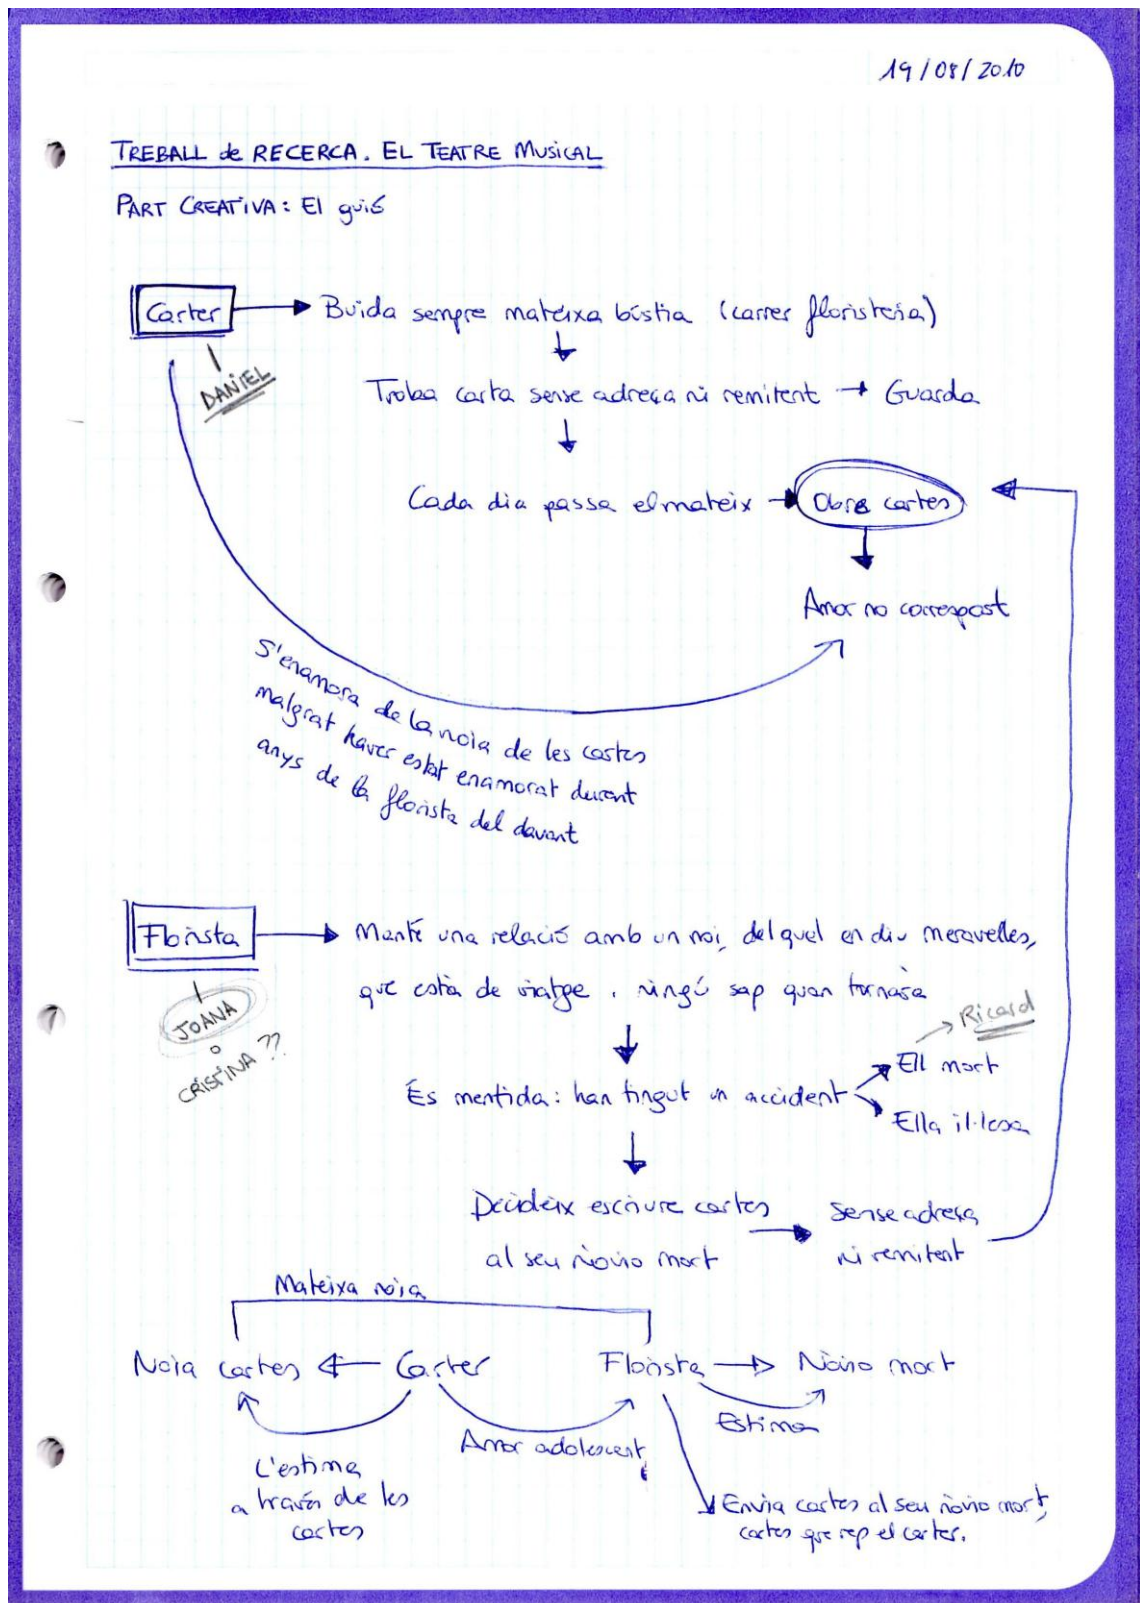 19/08/2010
TREBALL de RECERCA. EL TEATRE MUSICAL
PART CREATIVA: El guió
Carter → Buida sempre mateixa bústia (carrer floristeria)
DANIEL
Troba carta sense adreça ni remitent → Guarda
Cada dia passa el mateix → Obre cartes
Amor no correspost
S'enamora de la noia de les cartes
malgrat haver estat enamorat durant
anys de la florista del davant
Florista → Manté una relació amb un noi, del quel en diu meravelles,
que està de viatge, ningú sap quan tornarà
JOANA
o
CRISTINA??
Ricard
És mentida: han tingut un accident
Ell mort
Ella il·lesa
Decideix escriure cartes → Sense adreça
al seu nòvio mort ni remitent
Mateixa noia
Noia cartes ← Carter Florista → Nòvio mort
Estima
Amor adolescent
L'estima
a través de les
cartes
Envia cartes al seu nòvio mort,
cartes que rep el carter.